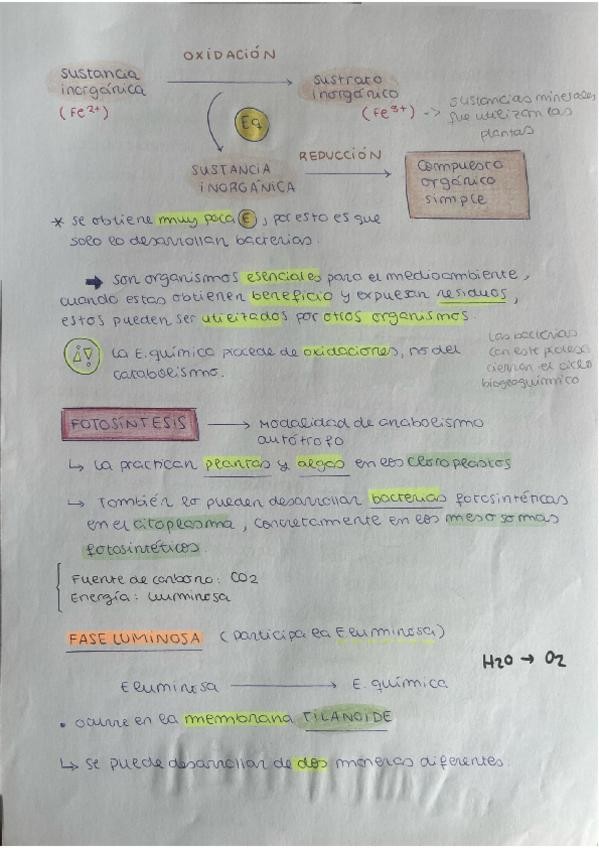 OXIDACIÓN
sustancia inorgánica (Fe2+) → sustrato inorgánico (Fe3+) --> sustancias minerales que utilizan las plantas
Eq
SUSTANCIA INORGÁNICA
REDUCCIÓN
compuesto orgánico simple
* se obtiene muy poca E, por esto es que
solo lo desarrollan bacterias.
→ son organismos esenciales para el medioambiente,
cuando estas obtienen beneficio y expulsan residuos,
estos pueden ser utilizados por otros organismos.
¡! La E.química procede de oxidaciones, no del
catabolismo.
Las bacterias
con este proceso
cierran el ciclo
biogeoquímico
FOTOSÍNTESIS → Modalidad de anabolismo
autótrofo
↳ La practican plantas y algas en los cloroplastos
↳ También lo pueden desarrollar bacterias fotosintéticas
en el citoplasma, concretamente en los mesosomas
fotosintéticos.
Fuente de carbono: CO2
Energía: luminosa
FASE LUMINOSA (participa la E luminosa)
H2O → O2
E luminosa → E. química
• ocurre en la membrana TILANOIDE
↳ se puede desarrollar de dos maneras diferentes: